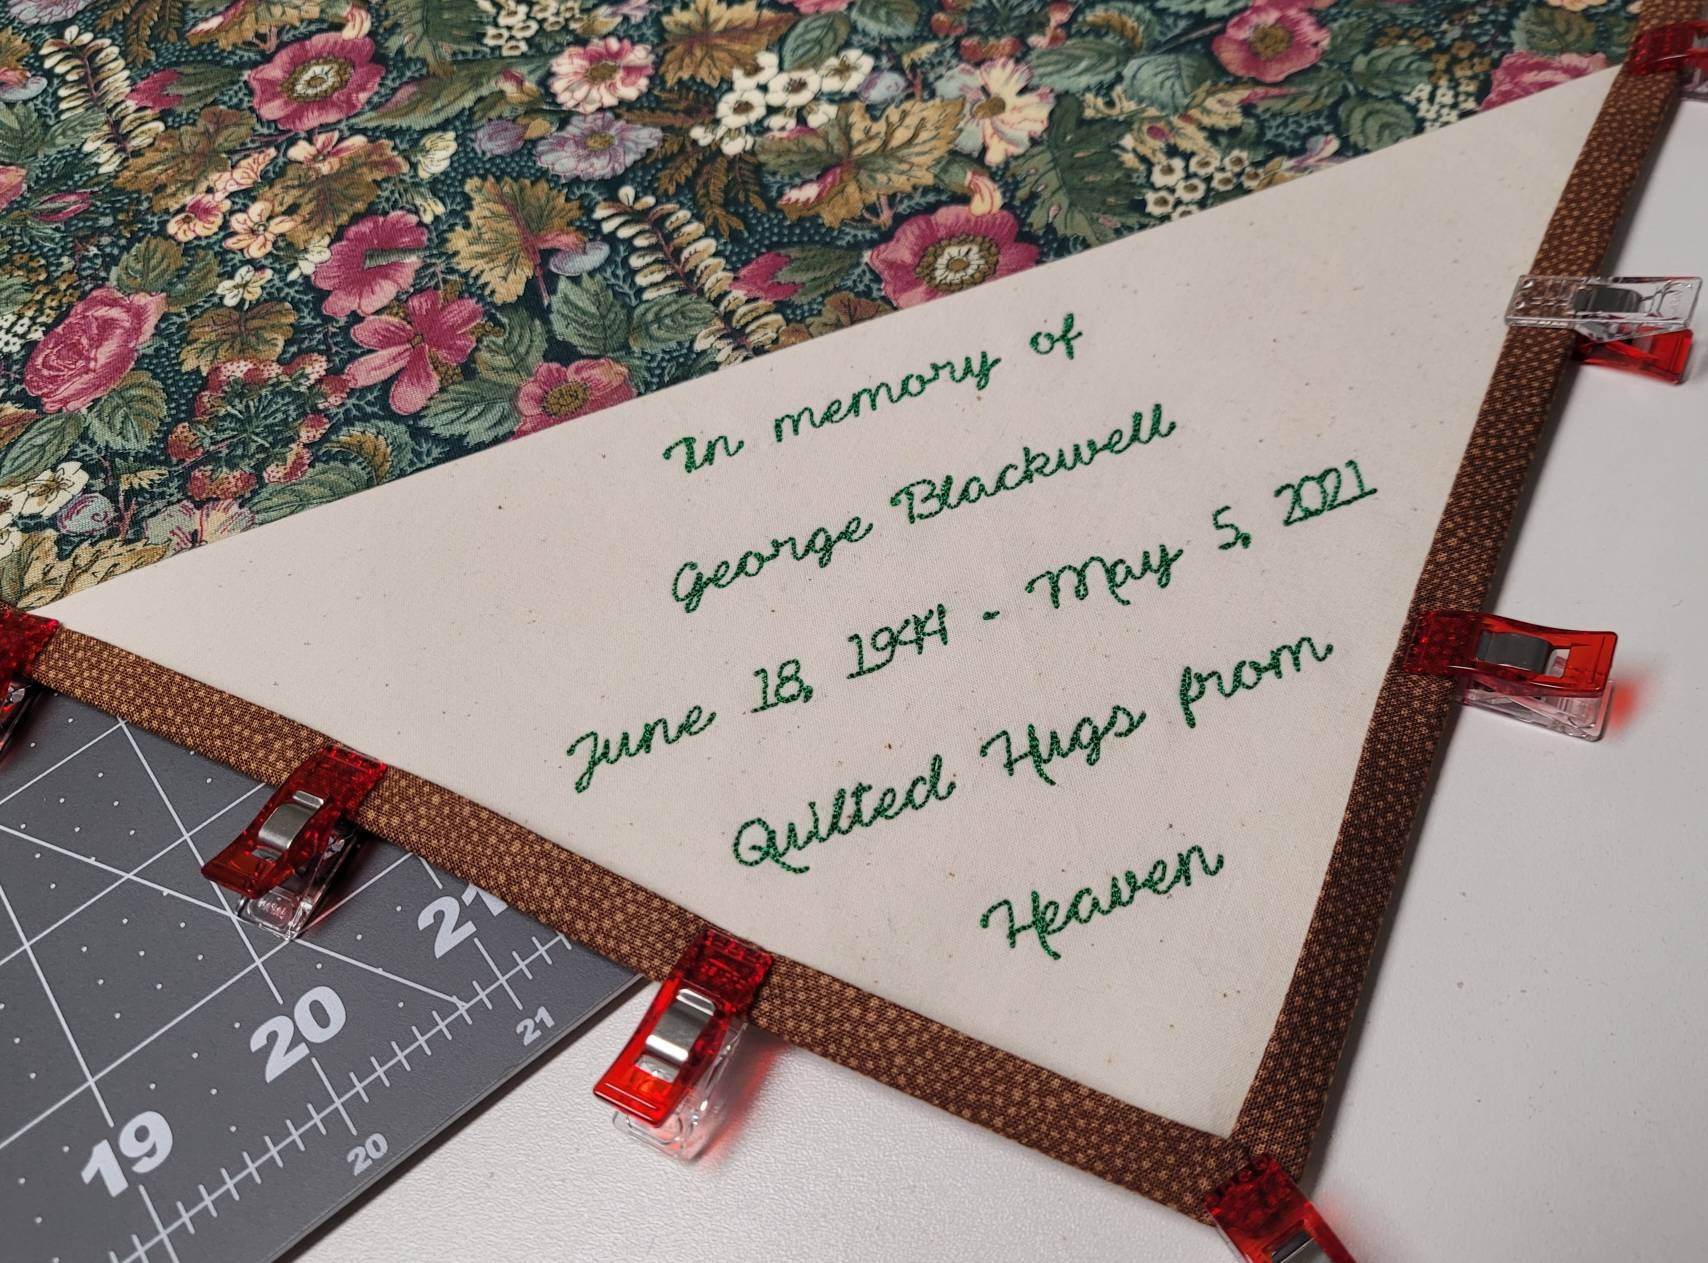 In memory of
George Blackwell
June 18, 1944 - May 5, 2021
Quilted Hugs from
Heaven
21
20
19
21
20